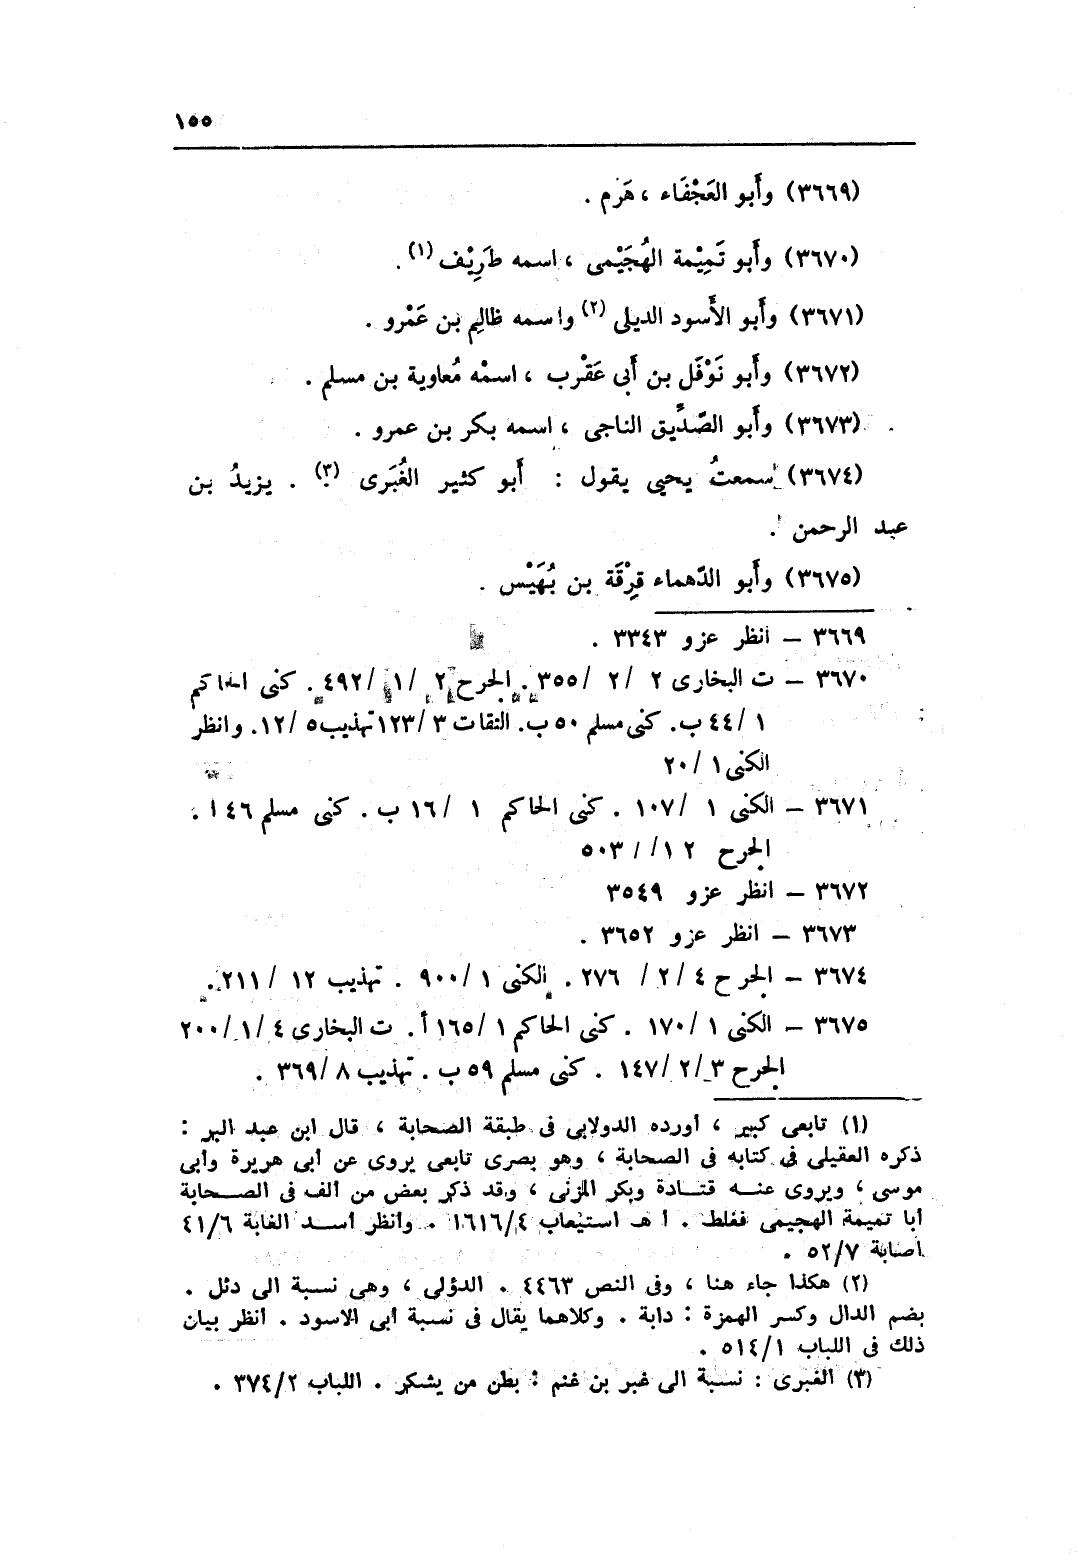 ١٥٥
(٣٦٦٩) وأَبو العَجْفَاء ، هَرَم .
(٣٦٧٠) وأَبو تَمِيْمة الهُجَيْمى ، اسمه طَرِيْف (١) .
(٣٦٧١) وأَبو الأَسود الديلى (٢) واسمه ظالِم بن عَمْرو .
(٣٦٧٢) وأَبو نَوْفَل بن أَبى عَقْرب ، اسمْه مُعاوية بن مسلم .
(٣٦٧٣) وأَبو الصِّدِّيق الناجى ، اسمه بكر بن عمرو .
(٣٦٧٤) سمعتُ يحيى يقول : أَبو كثير الغُبَرى (٣) . يزيدُ بن
عبد الرحمن .
(٣٦٧٥) وأَبو الدَّهماء قِرْفَة بن بُهَيْس .
٣٦٦٩ – انظر عزو ٣٣٤٣ .
٣٦٧٠ – ت البخارى ٢ / ٢ / ٣٥٥ . الجرح ٢ / ١ / ٤٩٢ . كنى الحاكم
١ / ٤٤ ب. كنى مسلم ٥٠ ب. الثقات ٣ / ١٢٣ تهذيب ٥ / ١٢. وانظر
الكنى ١ / ٢٠
٣٦٧١ – الكنى ١ / ١٠٧ . كنى الحاكم ١ / ١٦ ب . كنى مسلم ٤٦ ا .
الجرح ٢ ١/ / ٥٠٣
٣٦٧٢ – انظر عزو ٣٥٤٩
٣٦٧٣ – انظر عزو ٣٦٥٢ .
٣٦٧٤ – الجرح ٤ / ٢ / ٢٧٦ . الكنى ١ / ٩٠٠ . تهذيب ١٢ / ٢١١ .
٣٦٧٥ – الكنى ١ / ١٧٠ . كنى الحاكم ١ / ١٦٥ أ. ت البخارى ٤ / ١ / ٢٠٠
الجرح ٣ / ٢ / ١٤٧ . كنى مسلم ٥٩ ب . تهذيب ٨ / ٣٦٩ .
(١) تابعى كبير ، أورده الدولابى فى طبقة الصحابة ، قال ابن عبد البر :
ذكره العقيلى فى كتابه فى الصحابة ، وهو بصرى تابعى يروى عن أبى هريرة وأبى
موسى ، ويروى عنه قتادة وبكر المزنى ، وقد ذكر بعض من ألف فى الصحابة
أبا تميمة الهجيمى فغلط . ا هـ استيعاب ١٦١٦/٤ . وأنظر أسد الغابة ٤١/٦
اصابة ٥٢/٧ .
(٢) هكذا جاء هنا ، وفى النص ٤٤٦٣ . الدؤلى ، وهى نسبة الى دئل .
بضم الدال وكسر الهمزة : دابة . وكلاهما يقال فى نسبة أبى الاسود . أنظر بيان
ذلك فى اللباب ٥١٤/١ .
(٣) الغبرى : نسبة الى غبر بن غنم : بطن من يشكر . اللباب ٣٧٤/٢ .